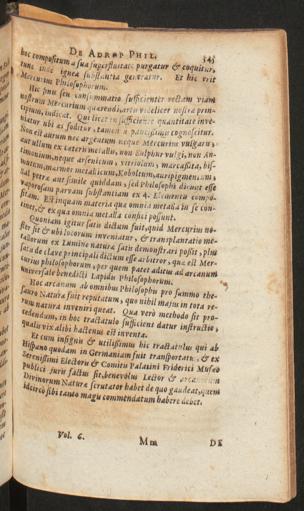 DE ADROP PHIL. 545
hoc compositum a sua superfluitate purgatur & coquitur,
tunc inde ignea substantia generatur. Et hic erit
Mercurius Philosophorum.
Hic finis seu consummatio sufficienter rectam viam
nostrum Mercurium quærendi, certo videlicet nostra prin-
cipium, indicat. Qui licet in sufficiente quantitate inve-
niatur ubi as foditur, tamen à paucissimis cognoscitur.
Non est aurum nec argentum neque Mercurius vulgaris,
aut ullum ex cæteris metallis, non Sulphur vulgi, non An-
timonium, neque arsenicum, vitriolum, marcasita, bis-
matum, marmor metallicum, Koboltum, auripigmentum,
sal petræ aut simile quiddam, sed Philosophi dicunt esse
vaporosam parvam substantiam ex 4. Elementis compo-
sitam. Estque in materia qua omnia metalla in se con-
tinet, & ex qua omnia metalla confici possunt.
Quoniam igitur satis dictum fuit, quid Mercurius no-
ster sit & ubi locorum inveniatur, & transplantatio me-
tallorum ex Lumine naturæ satis demonstrari possit, plus
satis de clave principali dictum esse arbitror, quæ est Mer-
curius philosophorum, per quem patet aditus ad arcanum
universale benedicti Lapidis Philosophorum.
Hoc arcanum ab omnibus Philosophis pro summo the-
sauro Naturæ fuit reputatum, quo nihil majus in tota re-
rum natura inveniri queat. Qua verò methodo sit pro-
cedendum, in hoc tractatulo sufficient datur instructio,
qualis vix alibi hactenus est inventa.
Et cum insignis & utilissimus hic tractatulus qui ab
Hispano quodam in Germaniam fuit transportatus, & ex
Serenissimi Electoris & Comitis Palatini Friderici Museo
publici juris factus sit, benevolus Lector & arcanorum
Divinorum Naturæ scrutator habet de quo gaudeat, quem
idcircò sibi tanto magis commendatum habere debet.
Vol. 6. Mm DE